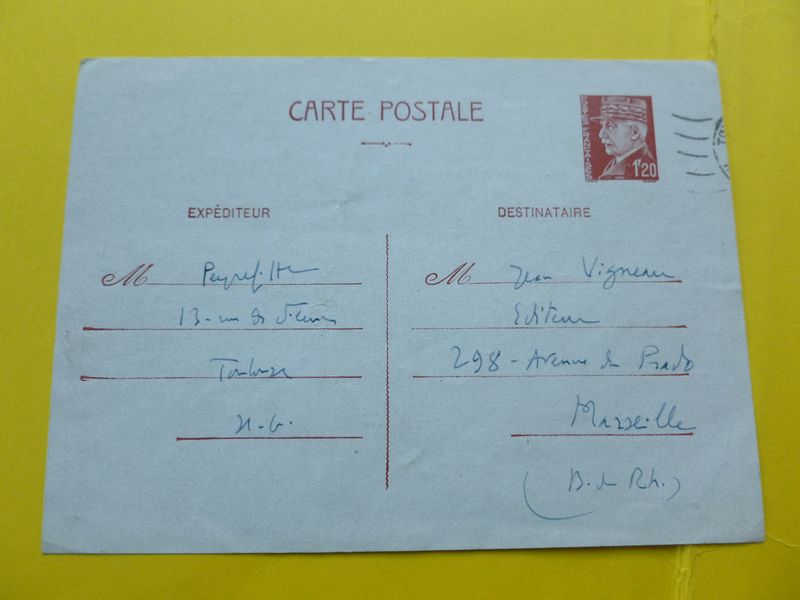 CARTE POSTALE
POSTES FRANÇAISES
1F20
TO
EXPÉDITEUR
M Peyrefitte
13 - rue de
Toulouse
H-G.
DESTINATAIRE
M Jean Vigneau
Editeur
298 - Avenue du Prado
Marseille
(B. du Rh.)